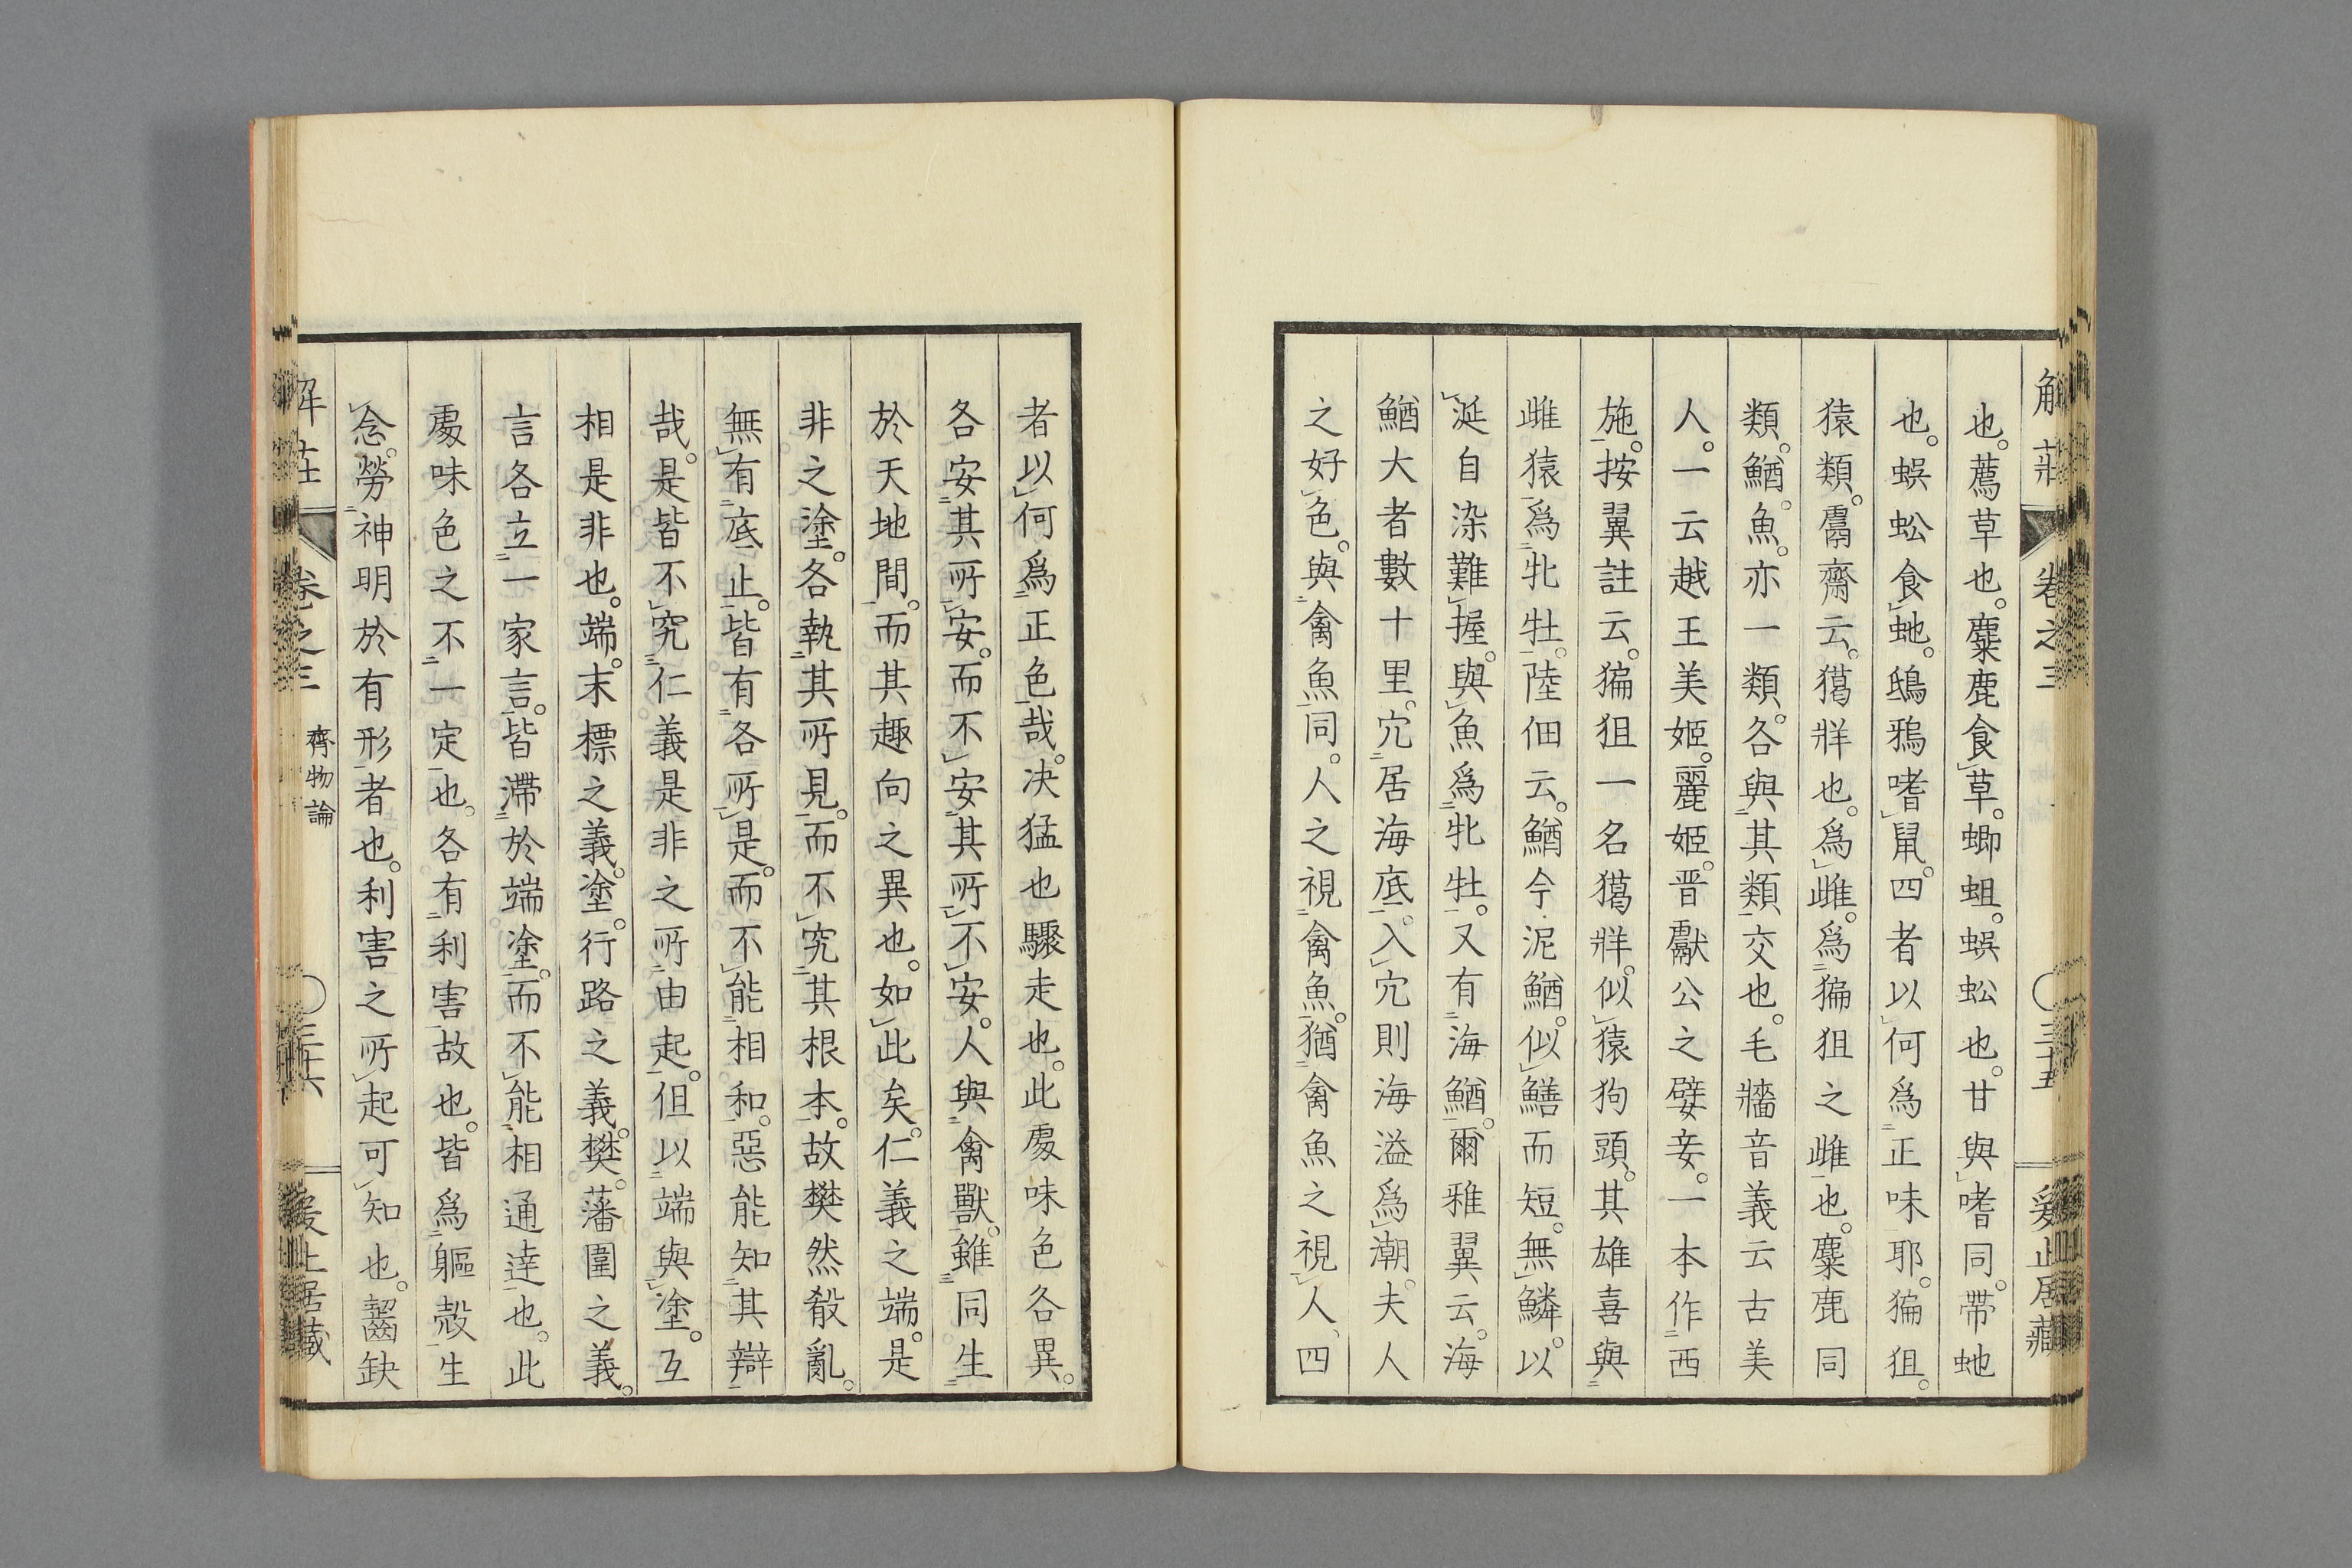 也。薦草也。麋鹿食草。蝍蛆。蜈蚣也。甘與嗜同。帶虵
也。蜈蚣食虵。鴟鴉嗜鼠。四者以何爲正味耶。猵狙。
猿類。鬳齋云。獦牂也。爲雌。爲猵狙之雌也。麋鹿同
類。鰌。魚。亦一類。各與其類交也。毛牆音義云古美
人。一云越王美姬。麗姬。晋獻公之嬖妾。一本作西
施。按翼註云。猵狙一名獦牂。似猿狗頭。其雄喜與
雌猿爲牝牡。陸佃云。鰌今泥鰌。似鱔而短。無鱗。以
涎自染難握。與魚爲牝牡。又有海鰌。爾雅翼云。海
鰌大者數十里。穴居海底。入穴則海溢爲潮。夫人
之好色。與禽魚同。人之視禽魚。猶禽魚之視人、四
解莊
卷之三
三十五
爰止居藏
者以何爲正色哉。决猛也驟走也。此處味色各異。
各安其所安。而不安其所不安。人與禽獸。雖同生
於天地間。而其趣向之異也。如此矣。仁義之端。是
非之塗。各執其所見。而不究其根本。故樊然殽亂。
無有底止。皆有各所是。而不能相和。惡能知其辯
哉。是皆不究仁義是非之所由起。但以端與塗。互
相是非也。端。末標之義。塗。行路之義。樊。藩圍之義。
言各立一家言。皆滯於端塗。而不能相通達也。此
處味色之不一定也。各有利害故也。皆爲軀殻生
念。勞神明於有形者也。利害之所起可知也。齧缺
解莊
卷之三
齊物論
三十六
爰止居藏